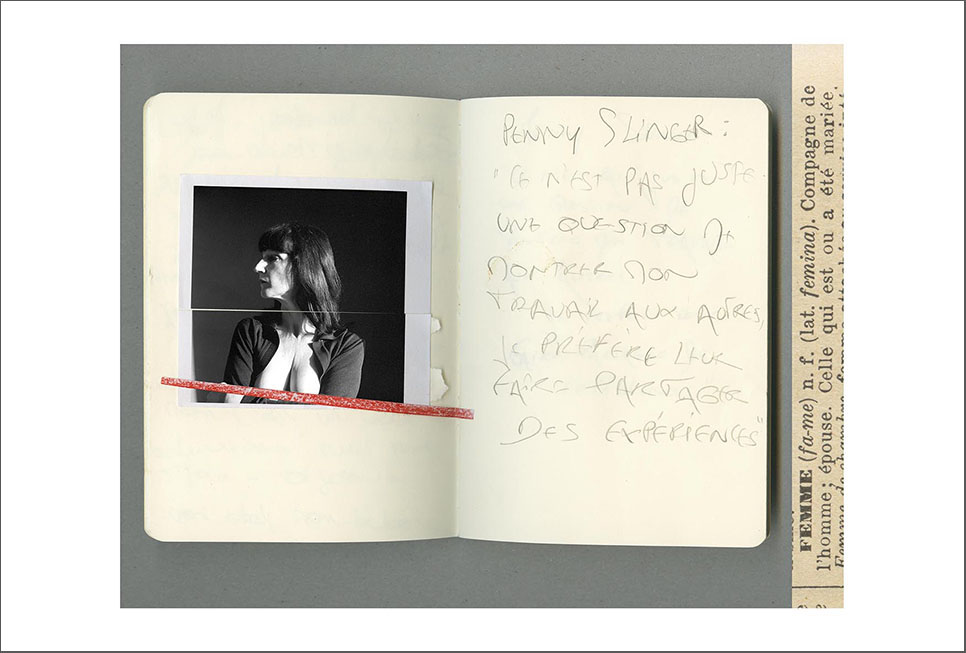 PENNY SLINGER :
"CE N'EST PAS JUSTE
UNE QUESTION DE
MONTRER MON
TRAVAIL AUX AUTRES,
JE PRÉFÈRE LEUR
FAIRE PARTAGER
DES EXPÉRIENCES"
FEMME (fa-me) n. f. (lat. femina). Compagne de
l'homme ; épouse. Celle qui est ou a été mariée.
Femme de chambre, femme